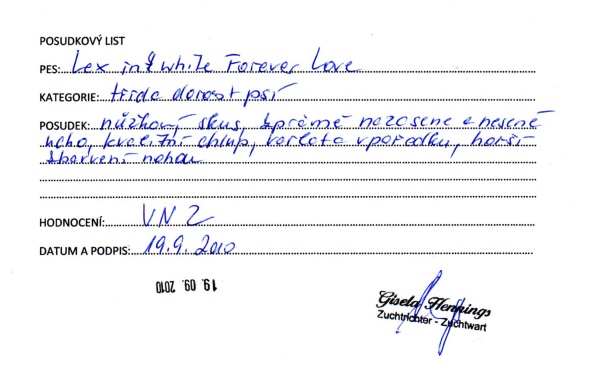 POSUDKOVÝ LIST
PES: Lex in whiZe Forever Love
KATEGORIE: třída dorost psí
POSUDEK: nůžkový skus, správně nazasene a nesené
ucho, kvalitní chlup, varlata v pořádku, horší
zbarvení nohou
HODNOCENÍ: VN 2
DATUM A PODPIS: 19.9.2010
19. 09. 2010
Gisela Hennings
Zuchtrichter - Zuchtwart